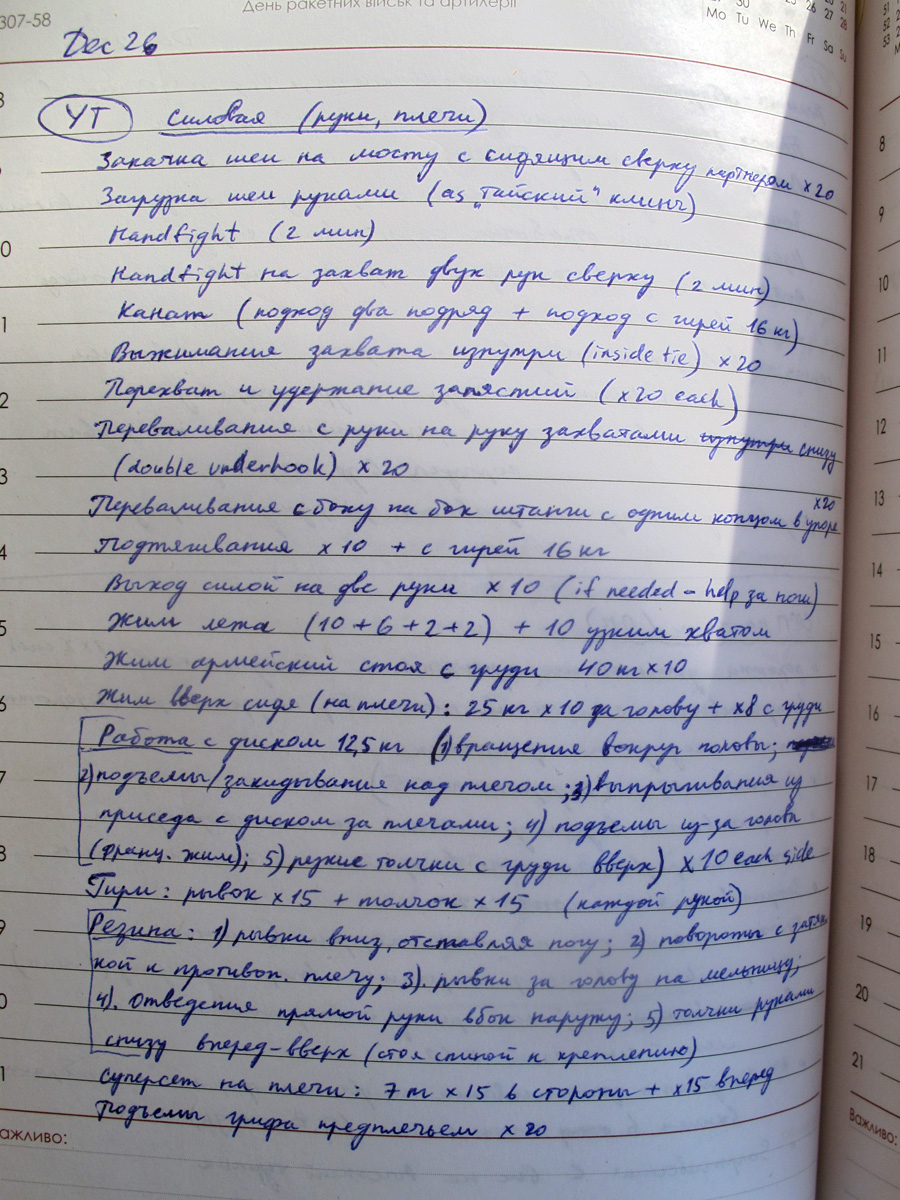 307-58
День ракетних військ та артилерії
Mo Tu We Th Fr Sa Su
26 27 28
Dec 26
УТ силовая (руки, плечи)
Закачка шеи на мосту с сидящим сверху партнером x20
Загрузка шеи руками (as "тайский" клинч)
Handfight (2 мин)
Handfight на захват двух рук сверху (2 мин)
Канат (подход два подряд + подход с гирей 16 кг)
Выжимания захвата изнутри (inside tie) x20
Перехват и удержание запястий (x20 each)
Переваливания с руки на руку захватами изнутри снизу
(double underhook) x 20
Переваливание с боку на бок штанги с одним концом в упоре x20
Подтягивания x10 + с гирей 16 кг
Выход силой на две руки x10 (if needed - help за ноги)
Жим лежа (10+6+2+2) + 10 узким хватом
Жим армейский стоя с груди 40 кг x10
Жим вверх сидя (на плечи): 25 кг x10 за голову + x8 с груди
Работа с диском 12,5 кг (1) вращения вокруг головы;
2) подъемы/закидывания над плечом; 3) выпрыгивания из
приседа с диском за плечами; 4) подъемы из-за головы
(франц. жим); 5) резкие толчки с груди вверх) x10 each side
Гири: рывок x15 + толчок x15 (каждой рукой)
Резина: 1) рывки вниз, отставляя ногу; 2) повороты с затяж
кой к противоп. плечу; 3). рывки за голову на мельницу;
4). отведения прямой руки вбок наружу; 5) толчки руками
снизу вперед-вверх (стоя спиной к креплению)
Суперсет на плечи: 7 m x15 в стороны + x15 вперед
Подъемы грифа предплечьем x 20
ажливо:
8
9
10
11
12
13
14
15
16
17
18
19
20
21
Важливо: